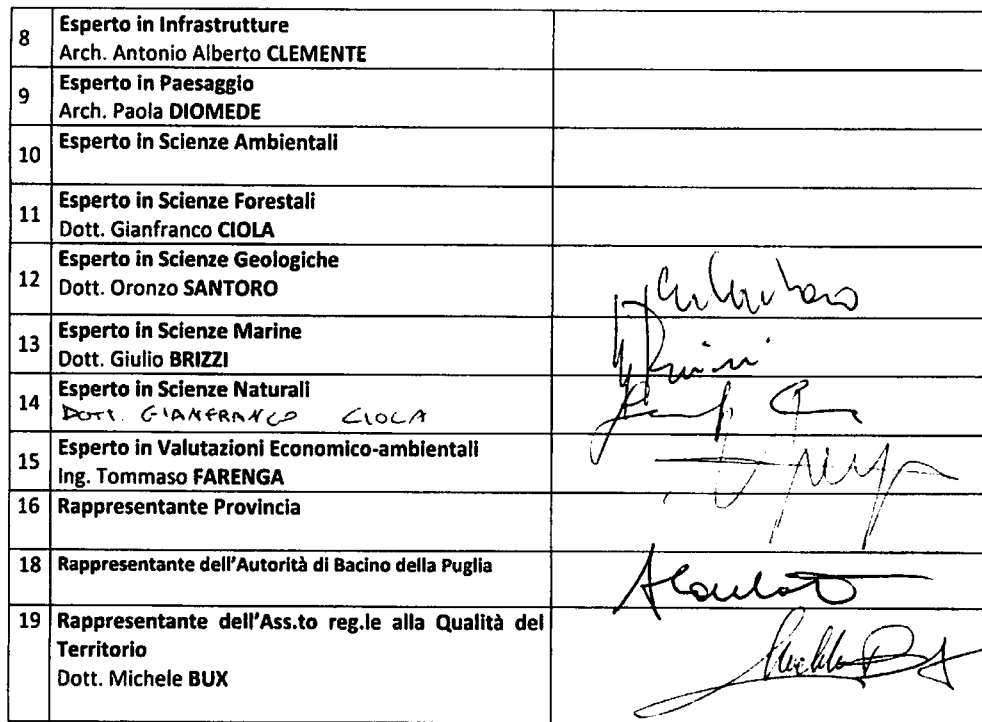 8 Esperto in Infrastrutture
Arch. Antonio Alberto CLEMENTE
9 Esperto in Paesaggio
Arch. Paola DIOMEDE
10 Esperto in Scienze Ambientali
11 Esperto in Scienze Forestali
Dott. Gianfranco CIOLA
12 Esperto in Scienze Geologiche
Dott. Oronzo SANTORO
13 Esperto in Scienze Marine
Dott. Giulio BRIZZI
14 Esperto in Scienze Naturali
DOTT. GIANFRANCO CIOLA
15 Esperto in Valutazioni Economico-ambientali
Ing. Tommaso FARENGA
16 Rappresentante Provincia
18 Rappresentante dell'Autorità di Bacino della Puglia
19 Rappresentante dell'Ass.to reg.le alla Qualità del
Territorio
Dott. Michele BUX